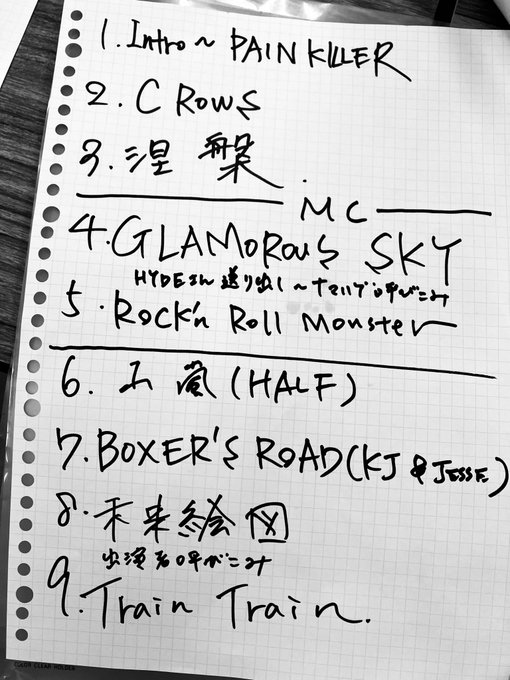 1. Intro~ PAIN KILLER
2. CROWS
3. 涅槃
MC
4. GLAMOROUS SKY
HYDEさん送り出し~ナマハゲ呼びこみ
5. ROCK'n Roll Monster
6. 山嵐(HALF)
7. BOXER'S ROAD(KJ & JESSE)
8. 未来絵図
出演者呼びこみ
9. Train Train.
COLOR CLEAR HOLDER